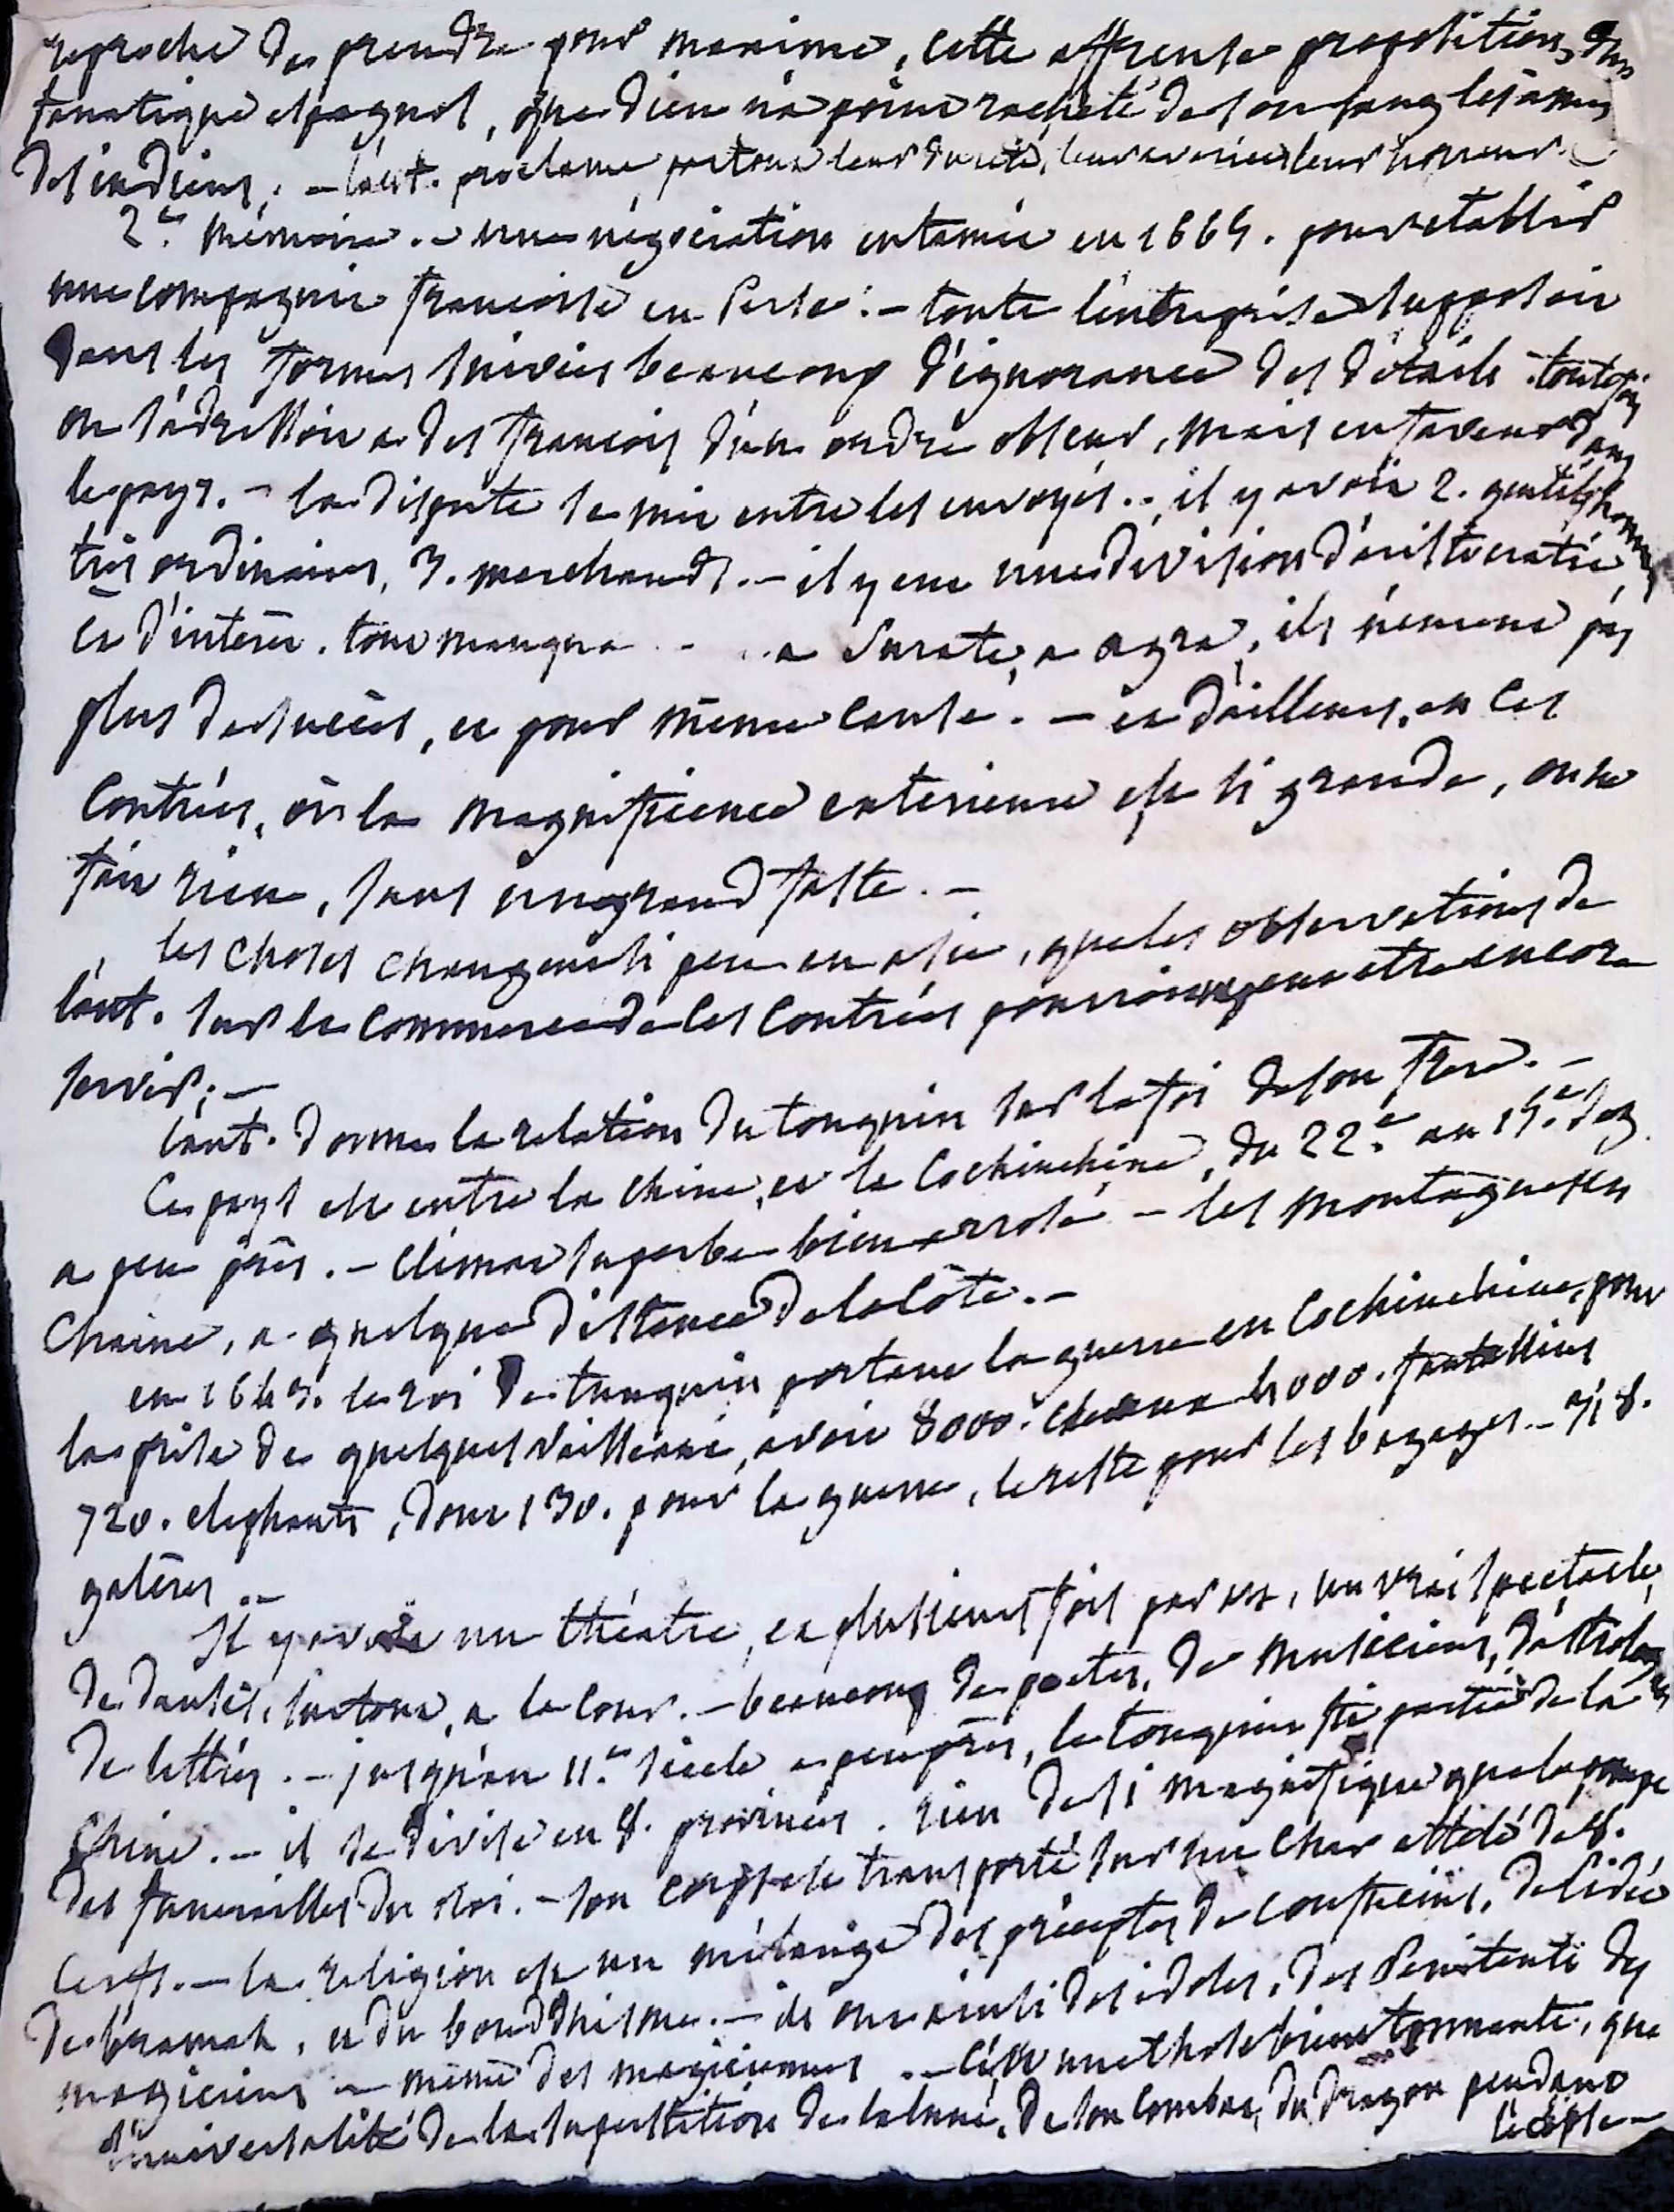 reproche de prendre pour maxime, cette affreuse proposition d'un
fanatique espagnol, que dieu n'a point racheté de son sang les ames
des indiens. – l'aut. proclame partout leur dureté, leur avarice leur
2e. mémoire. – une négociation entamée en 1664. pour etablir
une compagnie françoise en Perse. – toute l'entreprise supposoit
dans les formes suivies beaucoup d'ignorance des détails. toutefois
on s'adressoit a des françois d'un ordre obscur, mais en faveur dans
le pays. – la dispute se mit entre les envoyés. – il y avoit 2. gentilshommes
très ordinaires, 3. marchands. – il y eut une division d'aristocratie,
et d'intérêt. tout manqua – a Surate, a agra, ils n'eurent pas
plus de succès, et pour même cause. – et d'ailleurs, en ces
contrées, où la magnificence exterieure est si grande, on ne
fait rien, sans un grand faste. –
les choses changent si peu en asie, que les observations de
l'aut. sur le commerce de ces contrées pourroient peut etre encore
servir. –
l'aut. donne la relation du tonquin sur la foi de son frere. –
Ce pays est entre la chine, et la Cochinchine, du 22e. au 15e. deg.
a peu près. – climat superbe bien arrosé – les montagnes en
chaine, a quelque distance de la côte. –
en 1643. le roi de tunquin portant la guerre en Cochinchine, pour
la prise de quelques vaisseaux, avoit 8000. chevaux 94000. fantassins
720. elephants, dont 130. pour la guerre, le reste pour les bagages – 318.
galères. –
Il y avoit un théatre, et plusieurs fois par an, un vrai spectacle,
de danses, surtout, a la cour. – beaucoup de poetes, de musiciens, d'astrologues
de lettrés. – jusqu'au 11e. siècle a peu près, le tonquin fit partie de la
Chine. – il se divise en 8. provinces. rien de si magnifique que la pompe
des funerailles du roi. – son corps est transporté sur un char attelé de 8.
cerfs. – la religion est un mélange des préceptes de confucius, de l'idée
de bramah, et du bouddhisme. – ils ont aussi des idoles, des Penitents des
magiciens – même des magiciennes. – c'est une chose bien etonnante, que
l'universalité de la superstition de la lune, de son combat, du dragon pendant
l'eclipse –